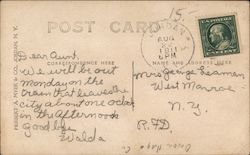 15-
POST CARD
AUG
1911
U.S. POSTAGE
CORRESPONDENCE HERE
NAME AND ADDRESS HERE
Dear Aunt,
We will be out
Monday on the
train that leaves the
city about one oclock
in the Afternoon
good bye
Mrs George Seaman
West Monroe
N.Y.
R.F.D